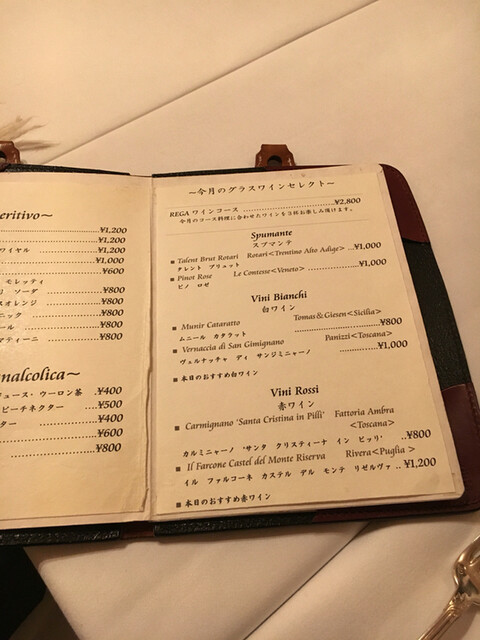 eritivo～
¥1,200
¥1,200
ワイヤル ¥1,000
¥600
モレッティ
ソーダ ¥800
スオレンジ ¥800
ニック ¥800
ール ¥800
マティーニ ¥800
nalcolica～
ジュース・ウーロン茶 ¥400
ピーチネクター ¥500
ター ¥400
¥600
¥800
～今月のグラスワインセレクト～
REGA ワインコース ¥2,800
今月のコース料理に合わせたワインを3杯お楽しみ頂けます。
Spumante
スプマンテ
■ Talent Brut Rotari Rotari<Trentino Alto Adige> ...¥1,000
タレント ブリュット
■ Pinot Rose Le Contesse<Veneto> ¥1,000
ピノ ロゼ
Vini Bianchi
白ワイン
■ Munir Cataratto Tomas&Giesen<Sicilia>
ムニール カタラット ¥800
■ Vernaccia di San Gimignano Panizzi<Toscana>
ヴェルナッチャ ディ サンジミニャーノ ¥1,000
■ 本日のおすすめ白ワイン
Vini Rossi
赤ワイン
■ Carmignano 'Santa Cristina in Pilli' Fattoria Ambra
<Toscana>
カルミニャーノ 'サンタ クリスティーナ イン ピッリ' ..¥800
■ Il Farcone Castel del Monte Riserva Rivera<Puglia >
イル ファルコーネ カステル デル モンテ リゼルヴァ .. ¥1,200
■ 本日のおすすめ赤ワイン